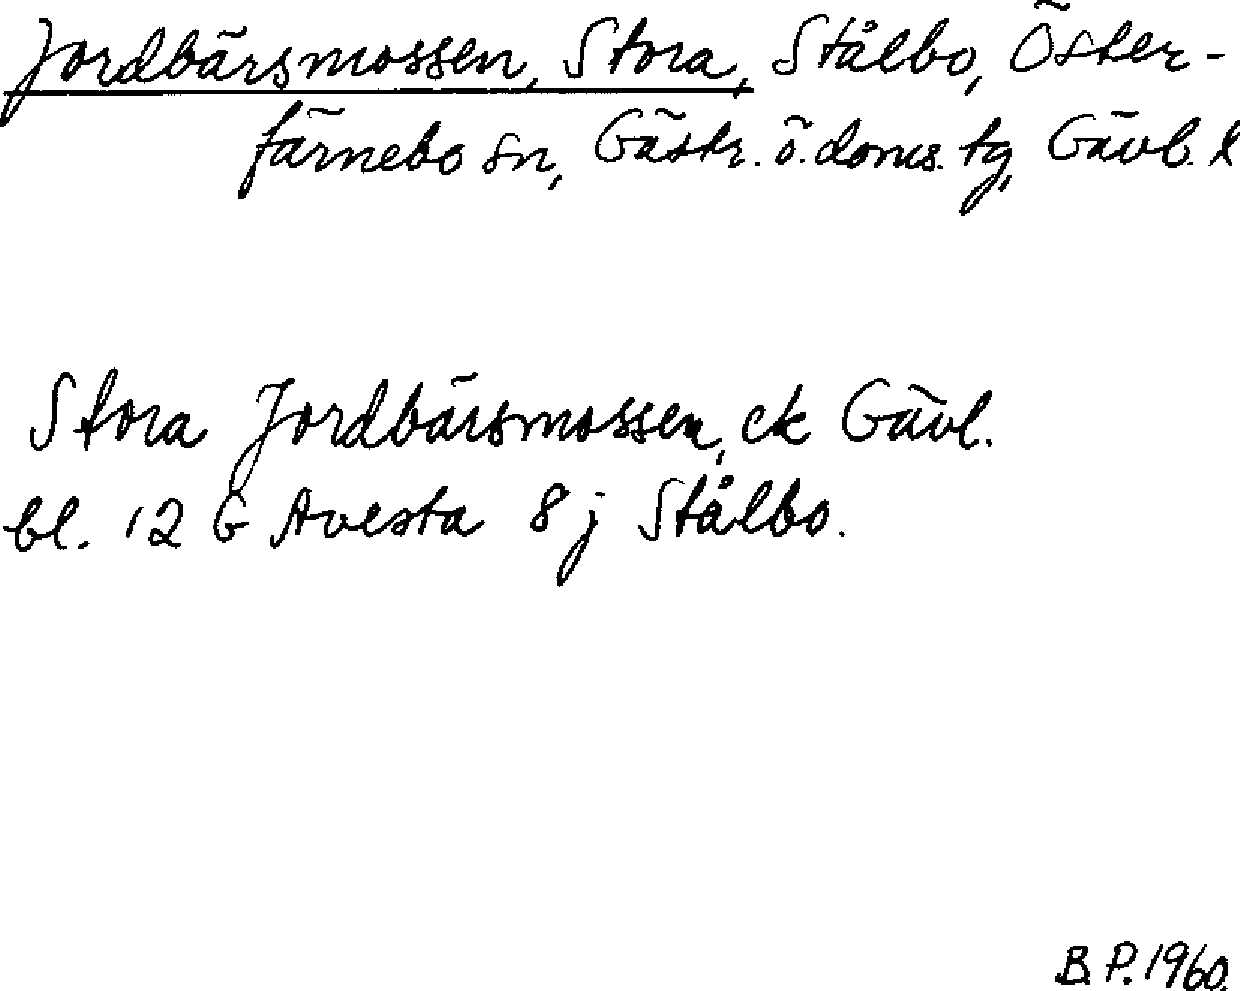 Jordbärsmossen, Stora, Stålbo, Öster-
färnebo sn, Gästr. ö. doms. tg, Gävl. l
Stora Jordbärsmossen, ek Gävl.
bl. 12 G Avesta 8 j Stålbo.
B.P. 1960.